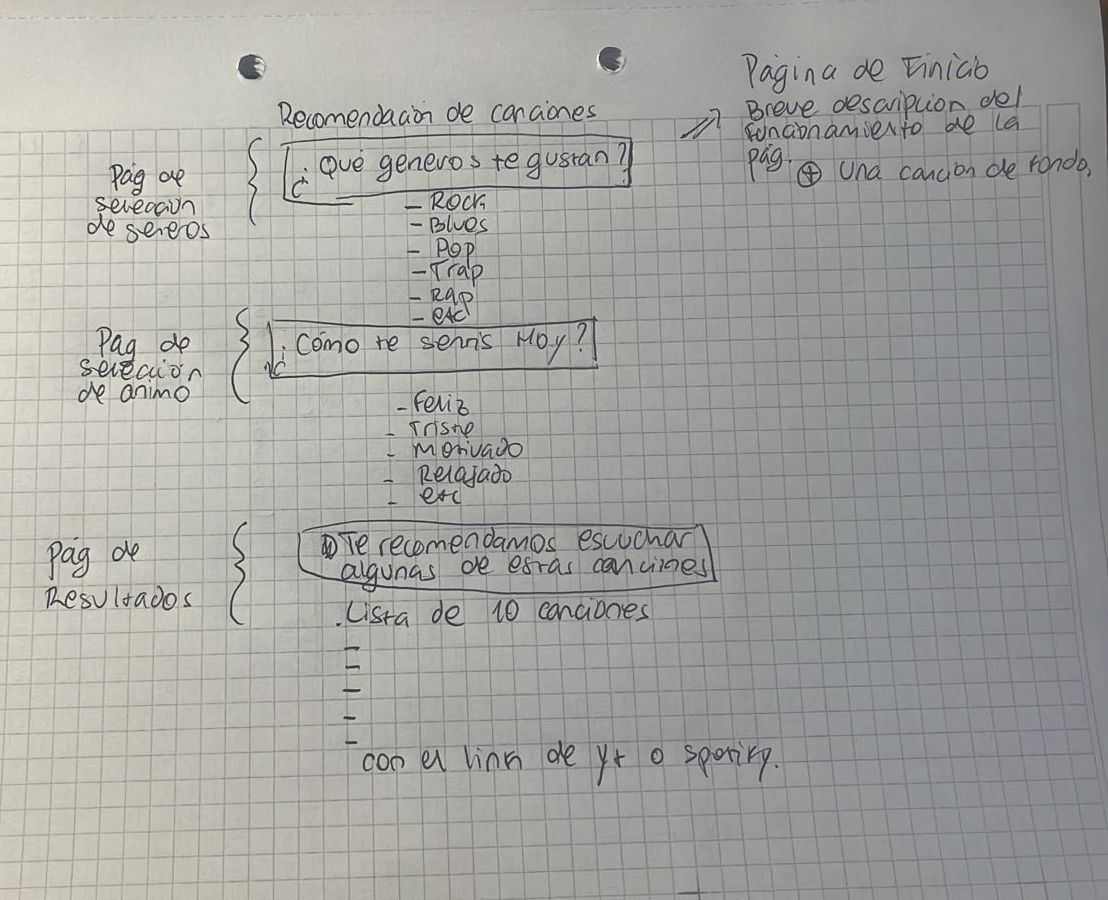 Página de Inicio
Breve descripcion del
funcionamiento de la
pág. + una cancion de fondo,
Recomendación de canciones
Pág de
selección
de generos
¿Qué generos te gustan?
- Rock
- Blues
- Pop
- Trap
- Rap
- etc
Pag de
selección
de animo
¿Cómo te sentís Hoy?
- Feliz
- Triste
- Motivado
- Relajado
- etc
Pág de
Resultados
Te recomendamos escuchar
algunas de estas canciones
. Lista de 10 canciones
-
-
-
-
-
con el link de yt o spotify.